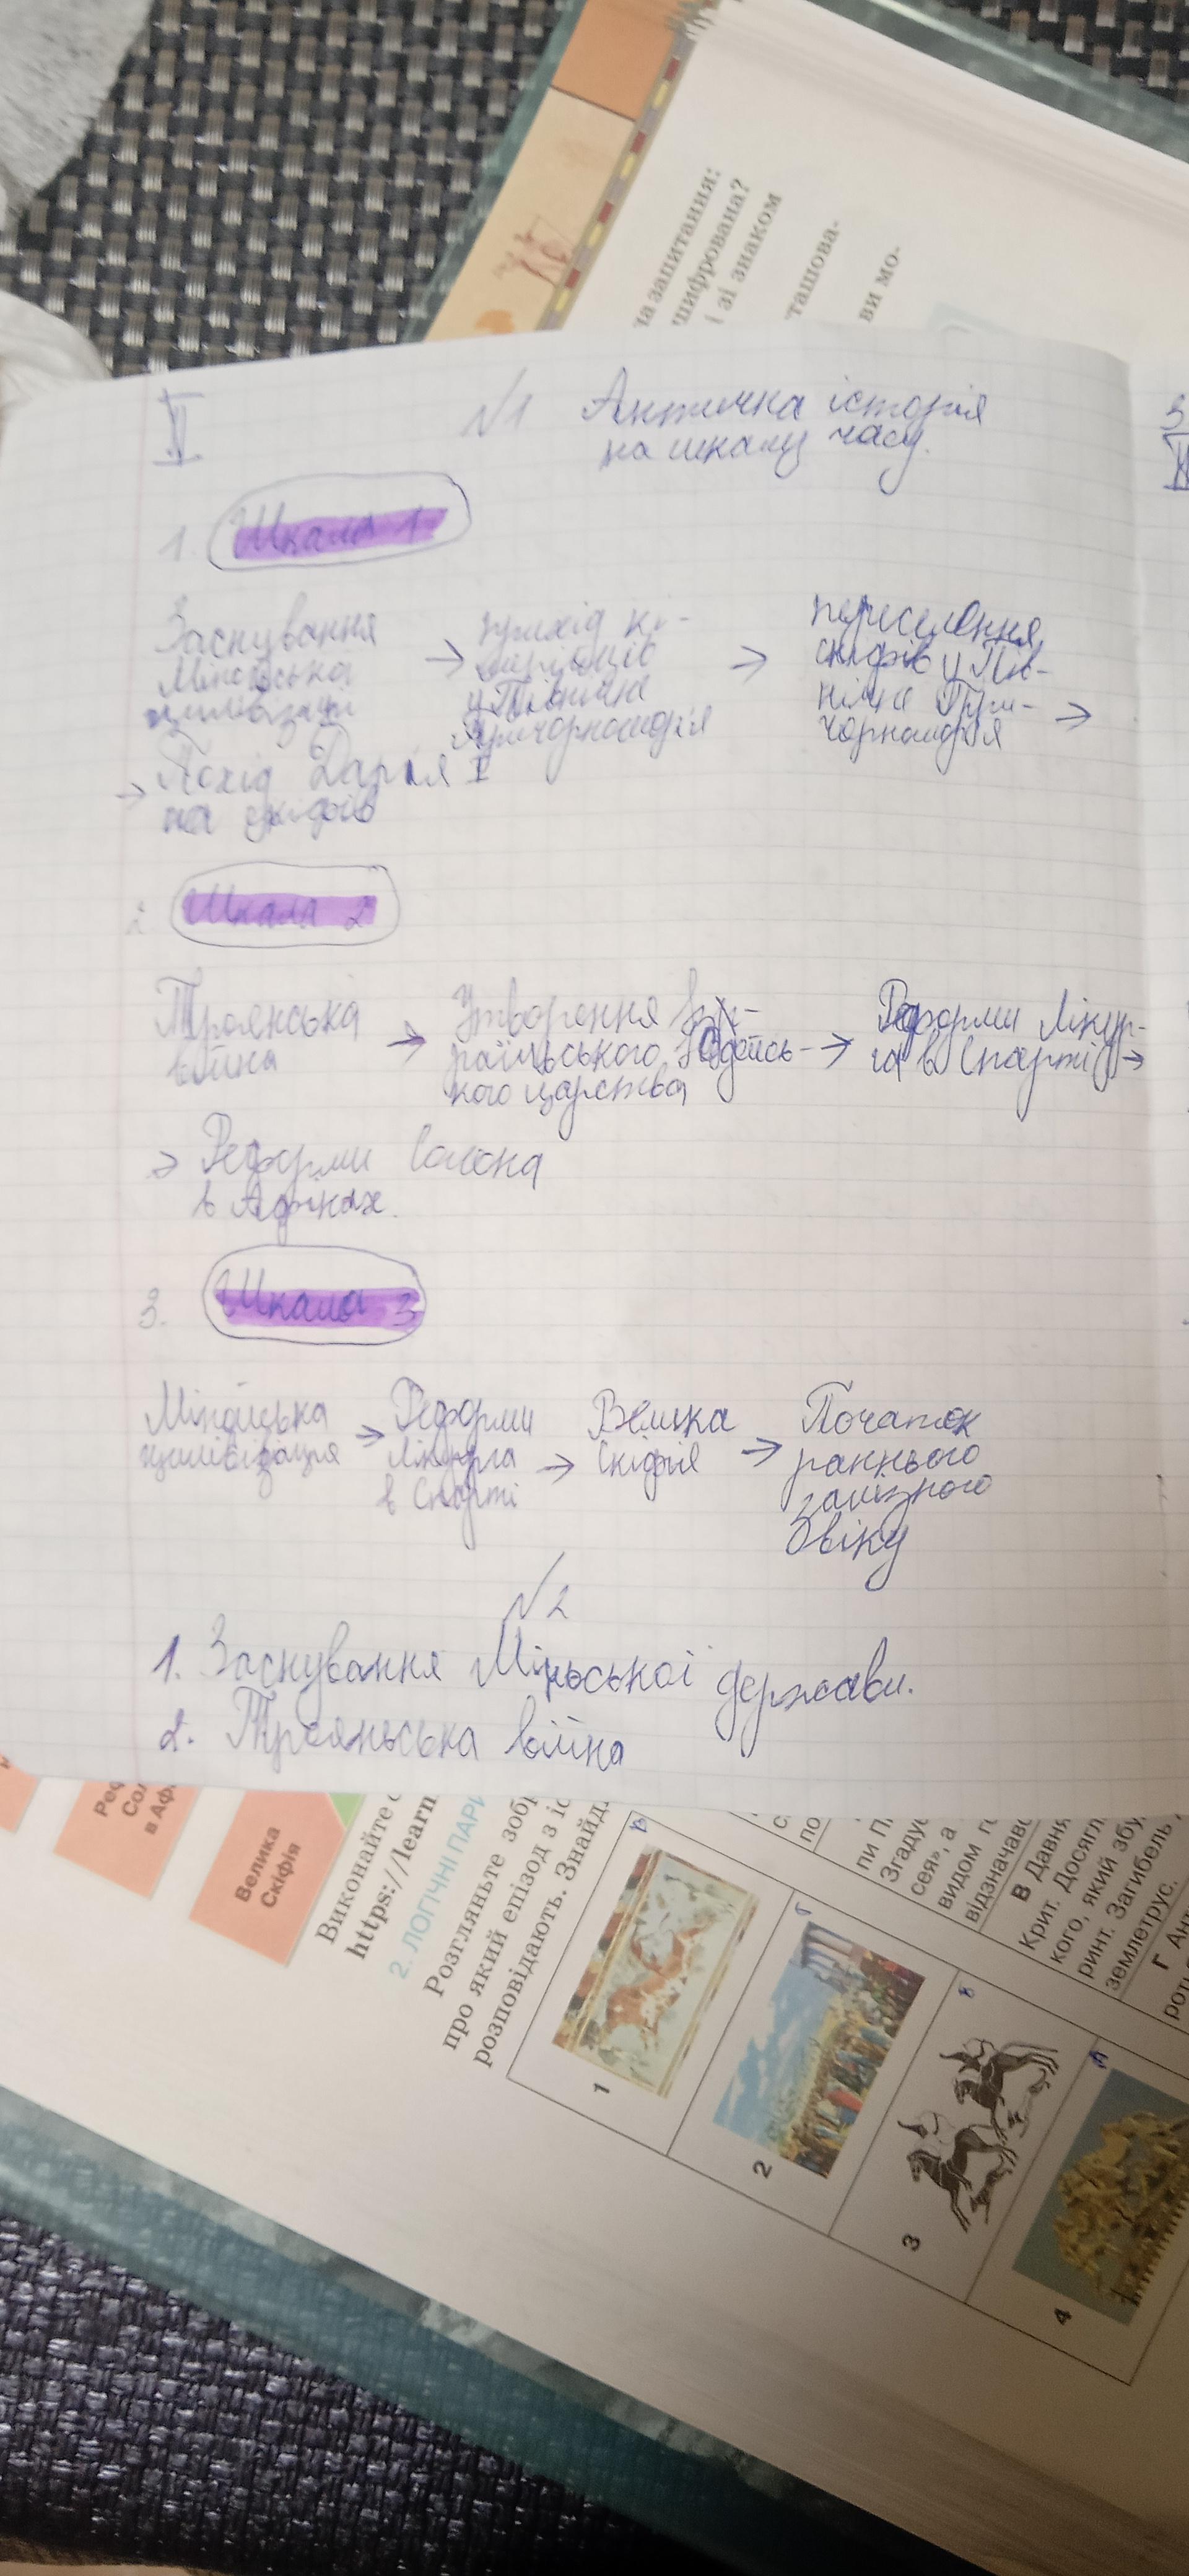 на запитання:
шифрована?
і зі знаком
ташова-
ви мо-
V
№1 Антична історія
на шкалу часу.
1. Шкала 1
Заснування
Мінойська
цивілізації
→ прихід кі-
мерійців
у Північне
Причорномор'я
→ переселення
скіфів у Пів-
нічне При-
чорномор'я →
→ Похід Дарія I
на скіфів
2. Шкала 2
Троянська
війна
→ Утворення
раїльського
кого царства
→ Реформи Лікур-
га в Спарті →
→ Реформи Солона
в Афінах.
3. Шкала 3
Мінойська
цивілізація
→ Реформи
Лікурга
в Спарті
→ Велика
Скіфія
→ Початок
раннього
залізного
віку
№2
1. Заснування держави.
2. Трояньська війна
Реф
Сол
в Аф
Велика
Скіфія
Виконайте
https://learn
2. ЛОГІЧНІ ПАРИ
Розгляньте зобр
про який епізод з іс
розповідають. Знайд
1
2
3
4
пи П
Згадує
сея», а
видом г
відзначав
В Давн
Крит. Досягл
кого, який збу
ринт. Загибель
землетрус.
Г Ант